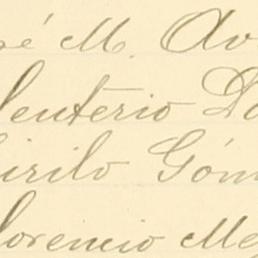 sé M. Av
leuterio Da
irilo Góm
lorencio Me